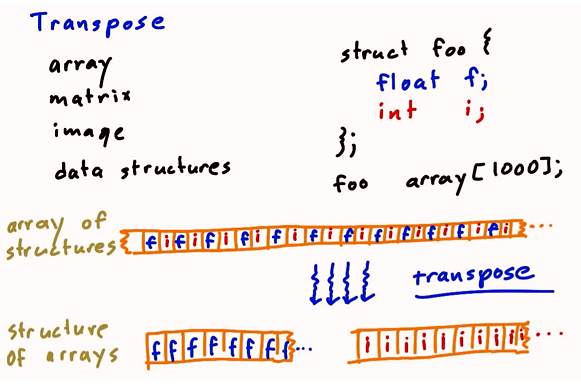 Transpose
array
matrix
image
data structures
struct foo {
float f;
int i;
};
foo array[1000];
array of
structures
f i f i f i f i f i f i f i f i f i f i f i f i f i ...
transpose
structure
of arrays
f f f f f f f f ...
i i i i i i i i i ...